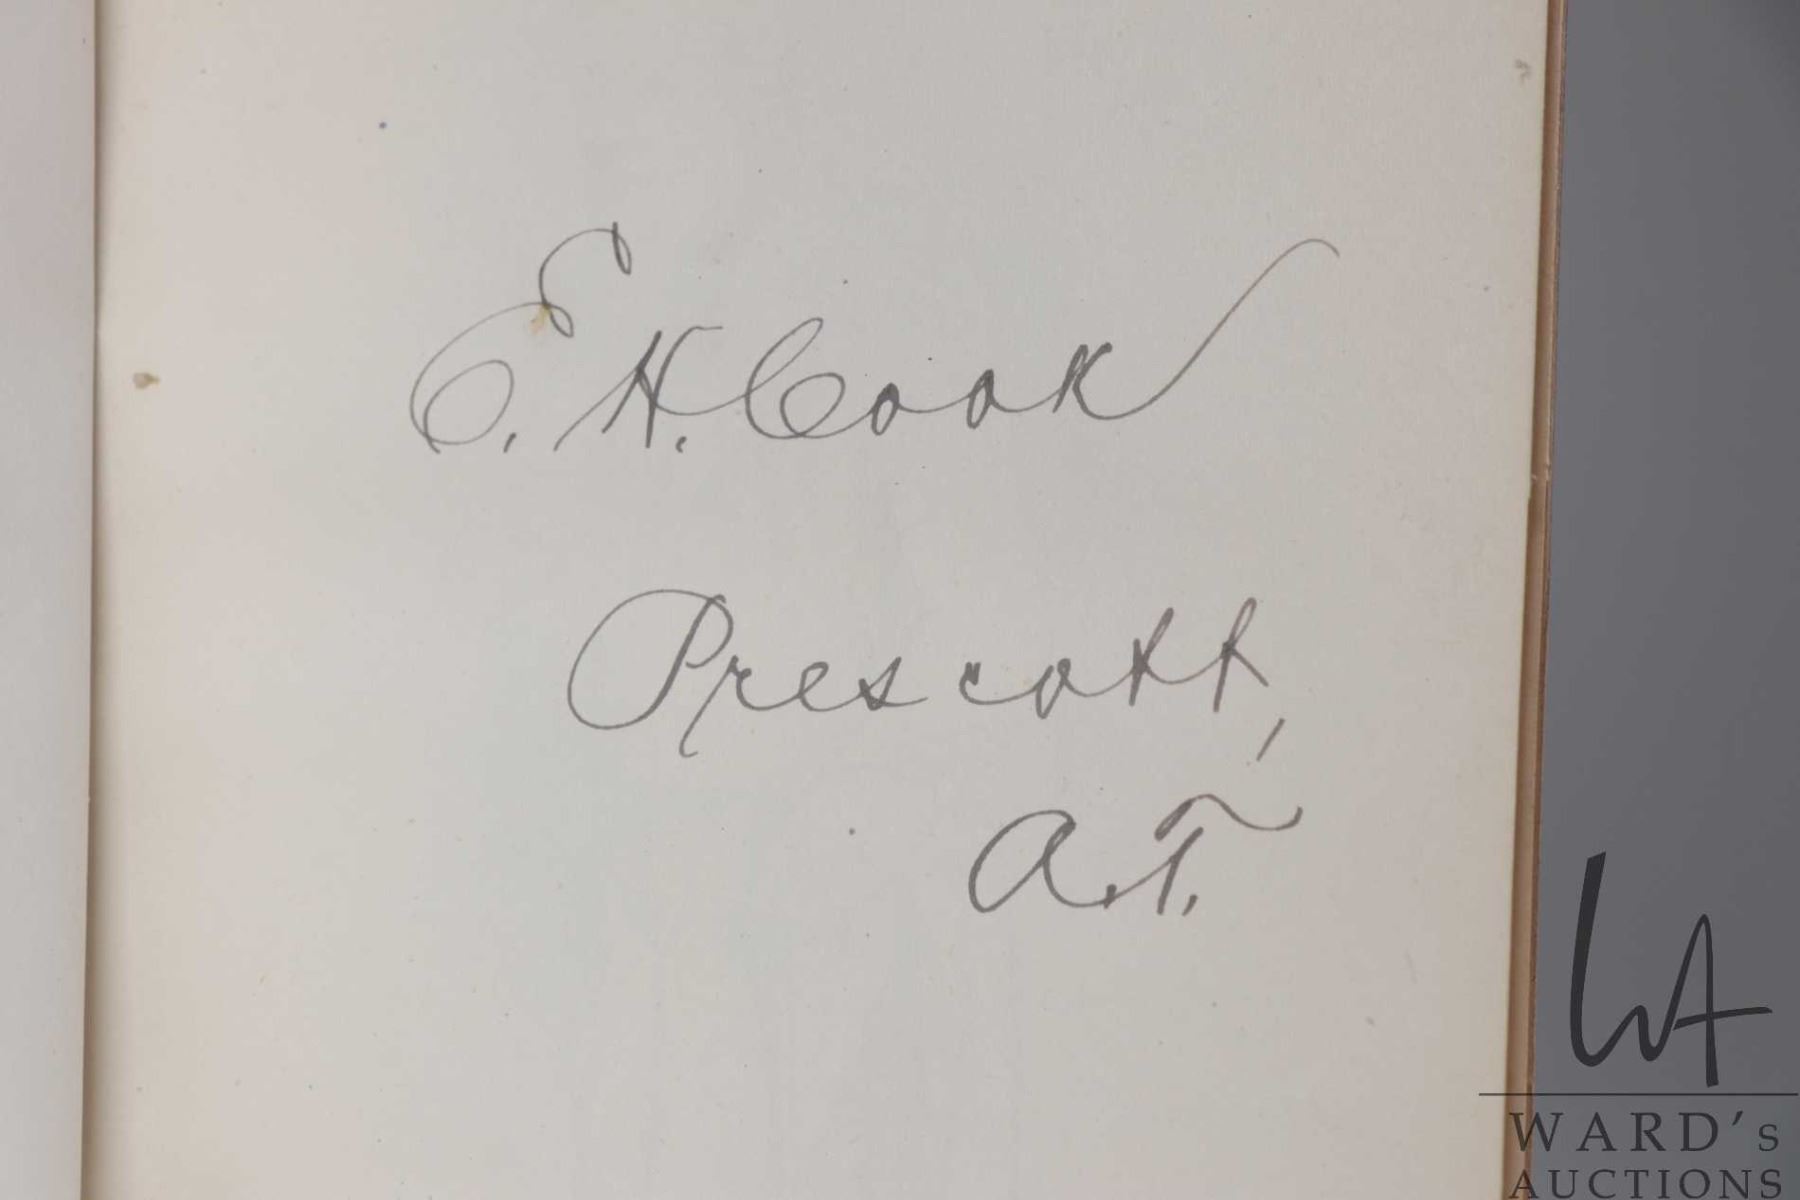 E. H. Cook
Prescott,
A.T.
WA
WARD's
AUCTIONS